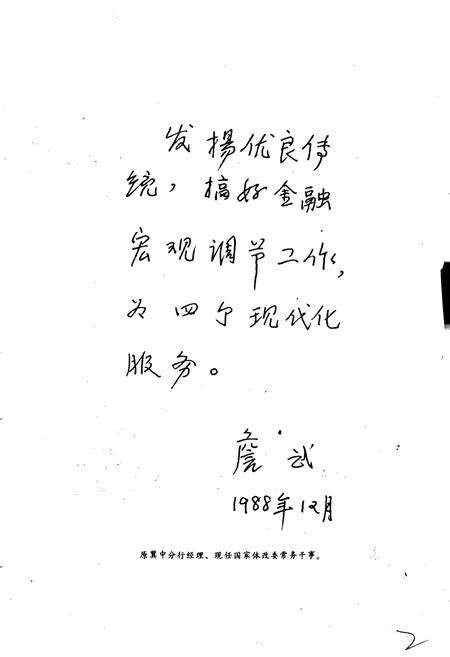 发揚优良传
统，搞好金融
宏观调节工作，
为四个现代化
服务。
詹武
1988年12月
原冀中分行经理、现任国家体改委常务干事。
2